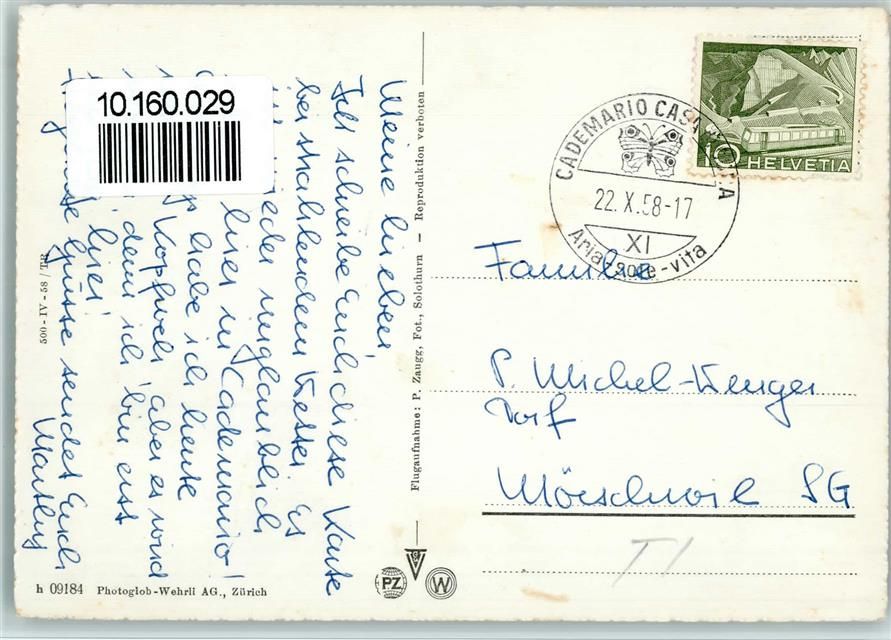 10.160.029
Meine Lieben!
Ich schreibe Euch diese Karte
bei strahlendem Wetter. Es
ist wieder unglaublich
hier in Cademario!
habe ich heute
Kopfweh aber es wird
denn ich bin erst
hier!
Grüsse sendet Euch
500-IV-58/TR
h 09184 Photoglob-Wehrli AG., Zürich
Flugaufnahme: P. Zaugg, Fot., Solothurn – Reproduktion verboten
PZ
W
CADEMARIO CASA
22.X.58-17
XI
Aria-sole-vita
10 HELVETIA
Familie
P. Michel-Wenger
Dorf
Mörschwil SG